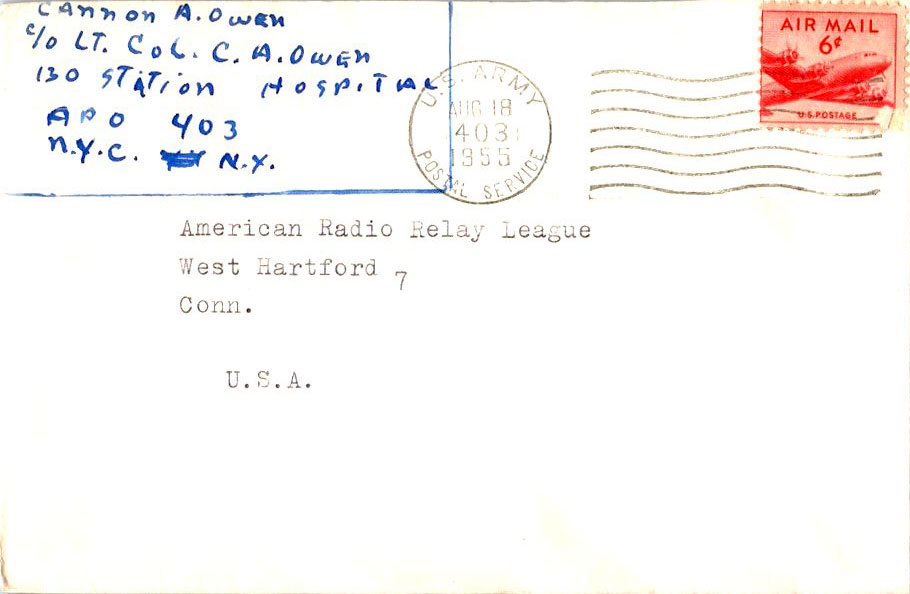 CANNON A. OWEN
c/o LT. COL. C. A. OWEN
130 STATION HOSPITAL
APO 403
N.Y.C. N.Y.
U.S. ARMY
AUG 18
403
1955
POSTAL SERVICE
AIR MAIL
6¢
U.S. POSTAGE
American Radio Relay League
West Hartford 7
Conn.
U.S.A.